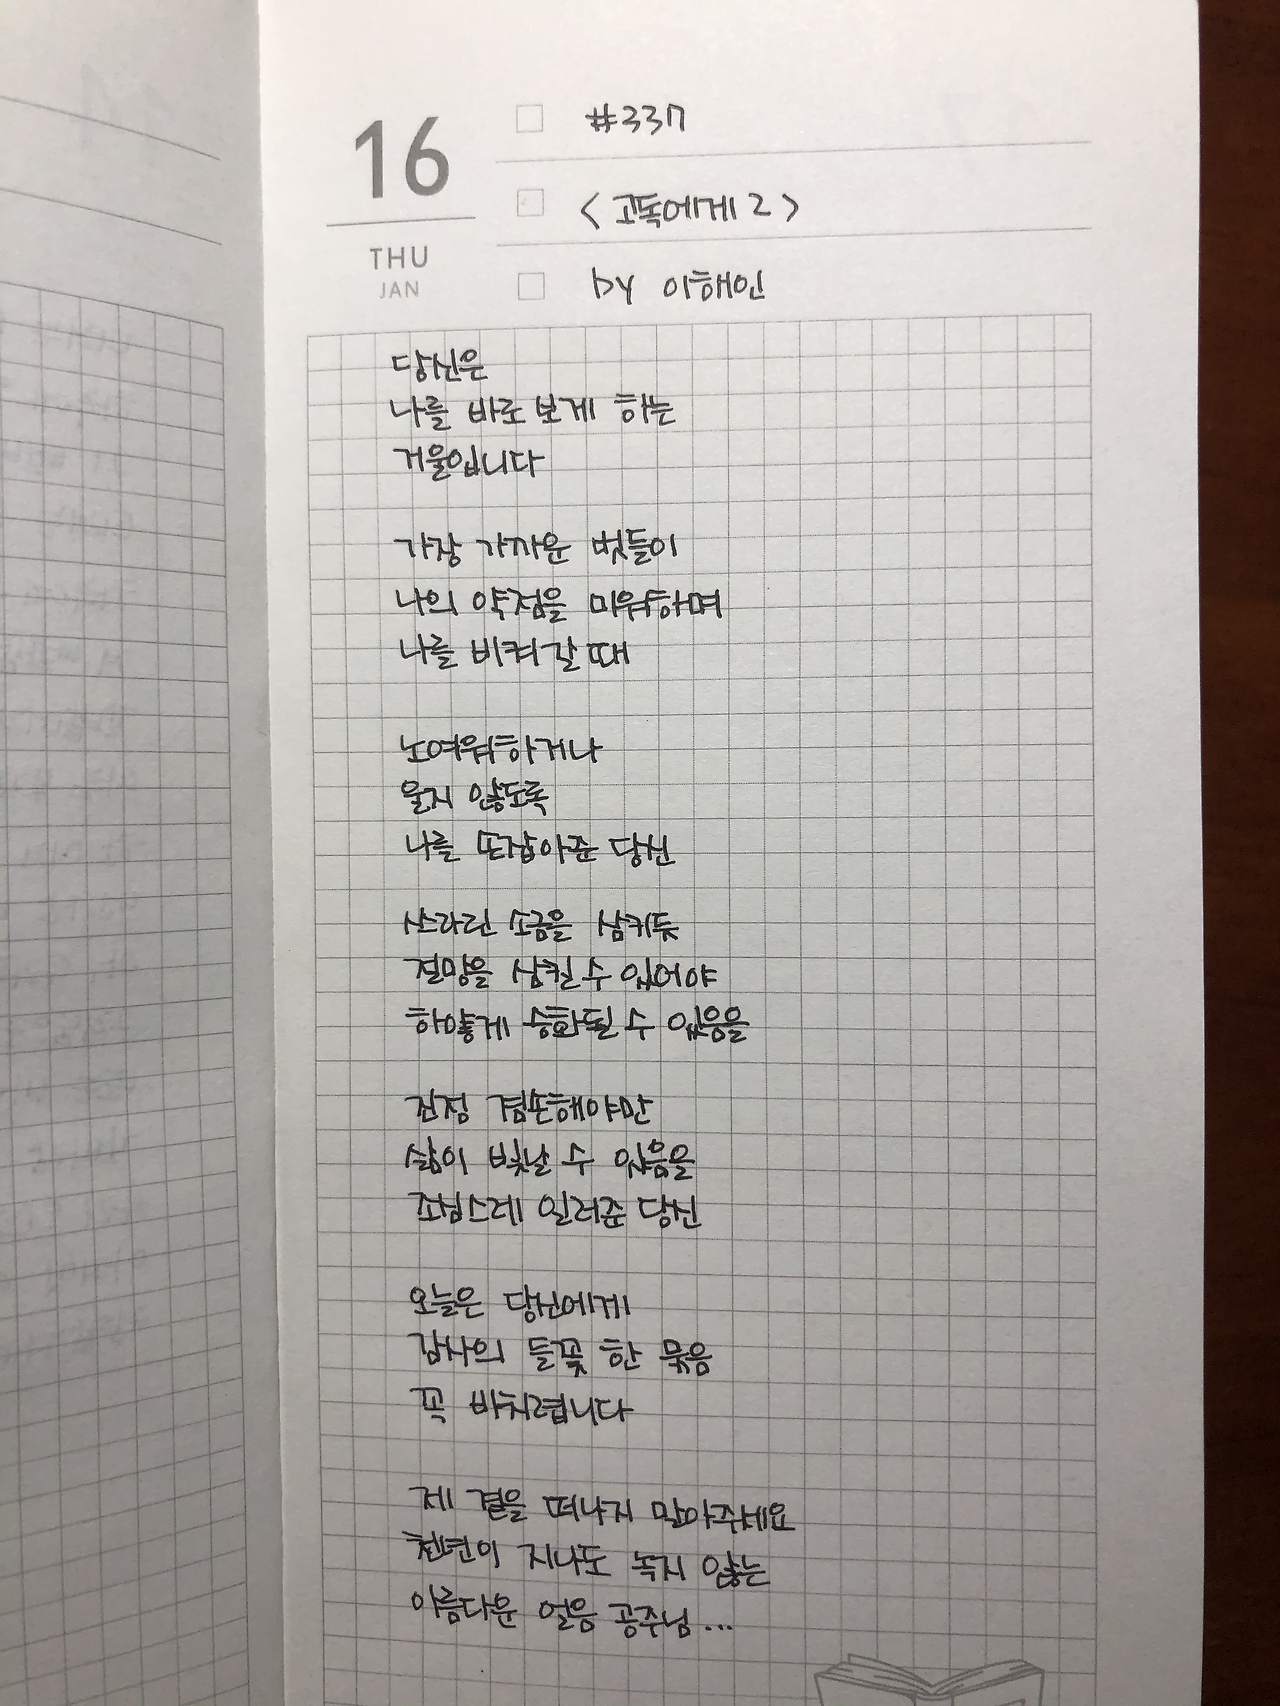 16
THU
JAN
#337
<고독에게 2>
by 이해인
당신은
나를 바로 보게 하는
거울입니다
가장 가까운 벗들이
나의 약점을 미워하며
나를 비켜갈 때
노여워하거나
울지 않도록
나를 또잡아준 당신
쓰라린 소금을 삼키듯
절망을 삼킬 수 있어야
하얗게 승화될 수 있음을
진정 겸손해야만
삶이 빛날 수 있음을
조심스레 일러준 당신
오늘은 당신에게
감사의 들꽃 한 묶음
꼭 바치렵니다
제 곁을 떠나지 말아주세요
천년이 지나도 녹지 않는
아름다운 얼음 공주님...